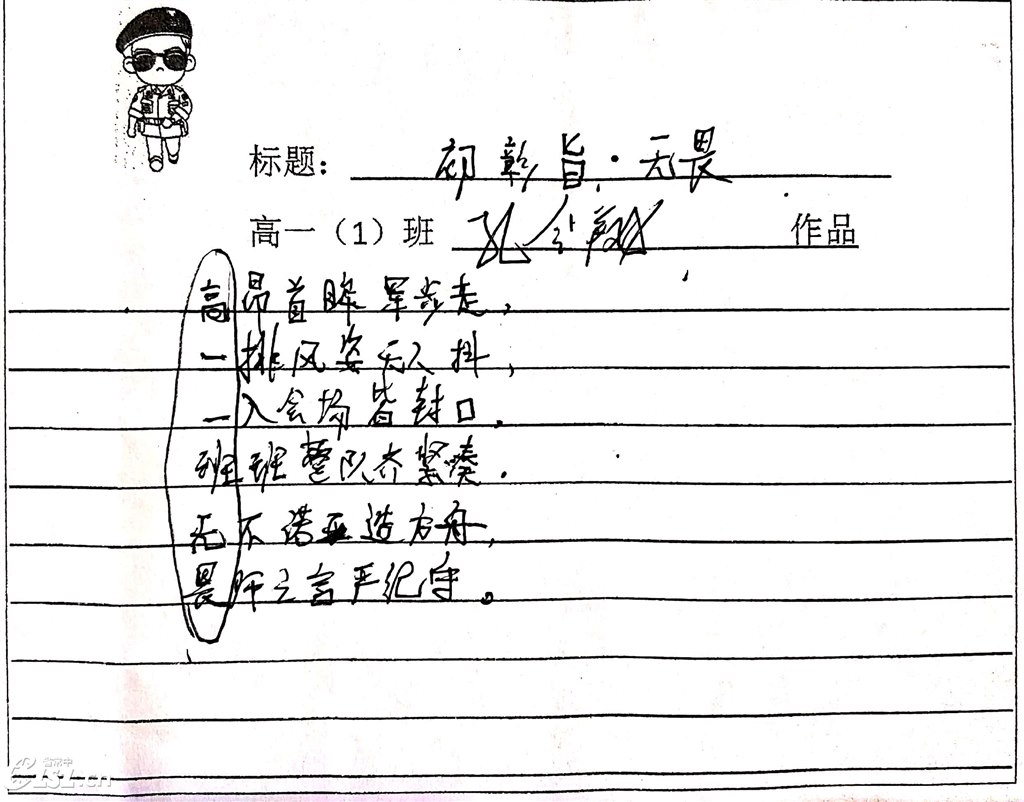 标题： 彰旨·无畏
高一（1）班 作品
高昂首 军步走，
一排风姿无人抖，
一入会场皆封口。
班班整队齐紧凑。
无不诺亚造方舟，
畏师之言严纪守。
151.cn